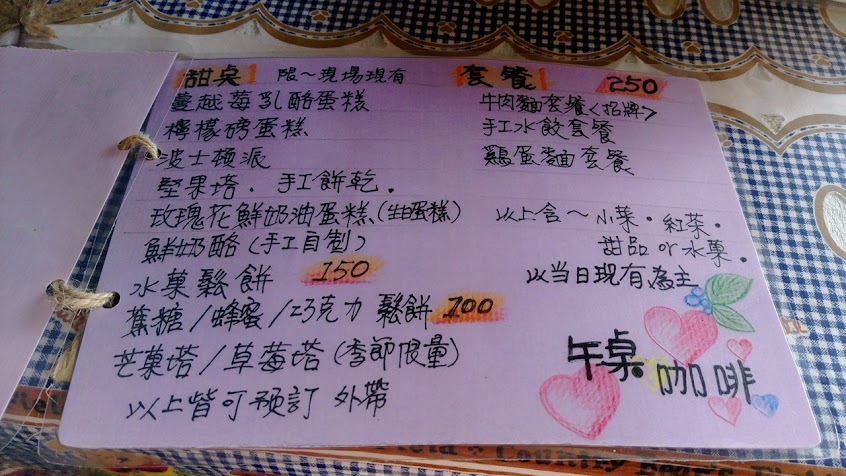 甜桌 限~現場現有
蔓越莓乳酪蛋糕
檸檬磅蛋糕
波士頓派
堅果塔.手工餅乾.
玫瑰花鮮奶油蛋糕(生日蛋糕)
鮮奶酪(手工自製)
水菓鬆餅 150
蕉糖/蜂蜜/巧克力 鬆餅 100
芒菓塔/草莓塔(季節限量)
以上皆可預訂 外帶
套餐 250
牛肉麵套餐<招牌>
手工水餃套餐
雞蛋麵套餐
以上含~小菜.紅茶.
甜品or水菓.
以當日現有為主
午桌 咖啡